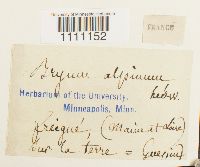 University of Minnesota Herbarium
1111152
FRANCE
Bryum alpinum
hedw.
Herbarium of the University,
Minneapolis, Minn.
(Maine et Loire)
sur la terre =